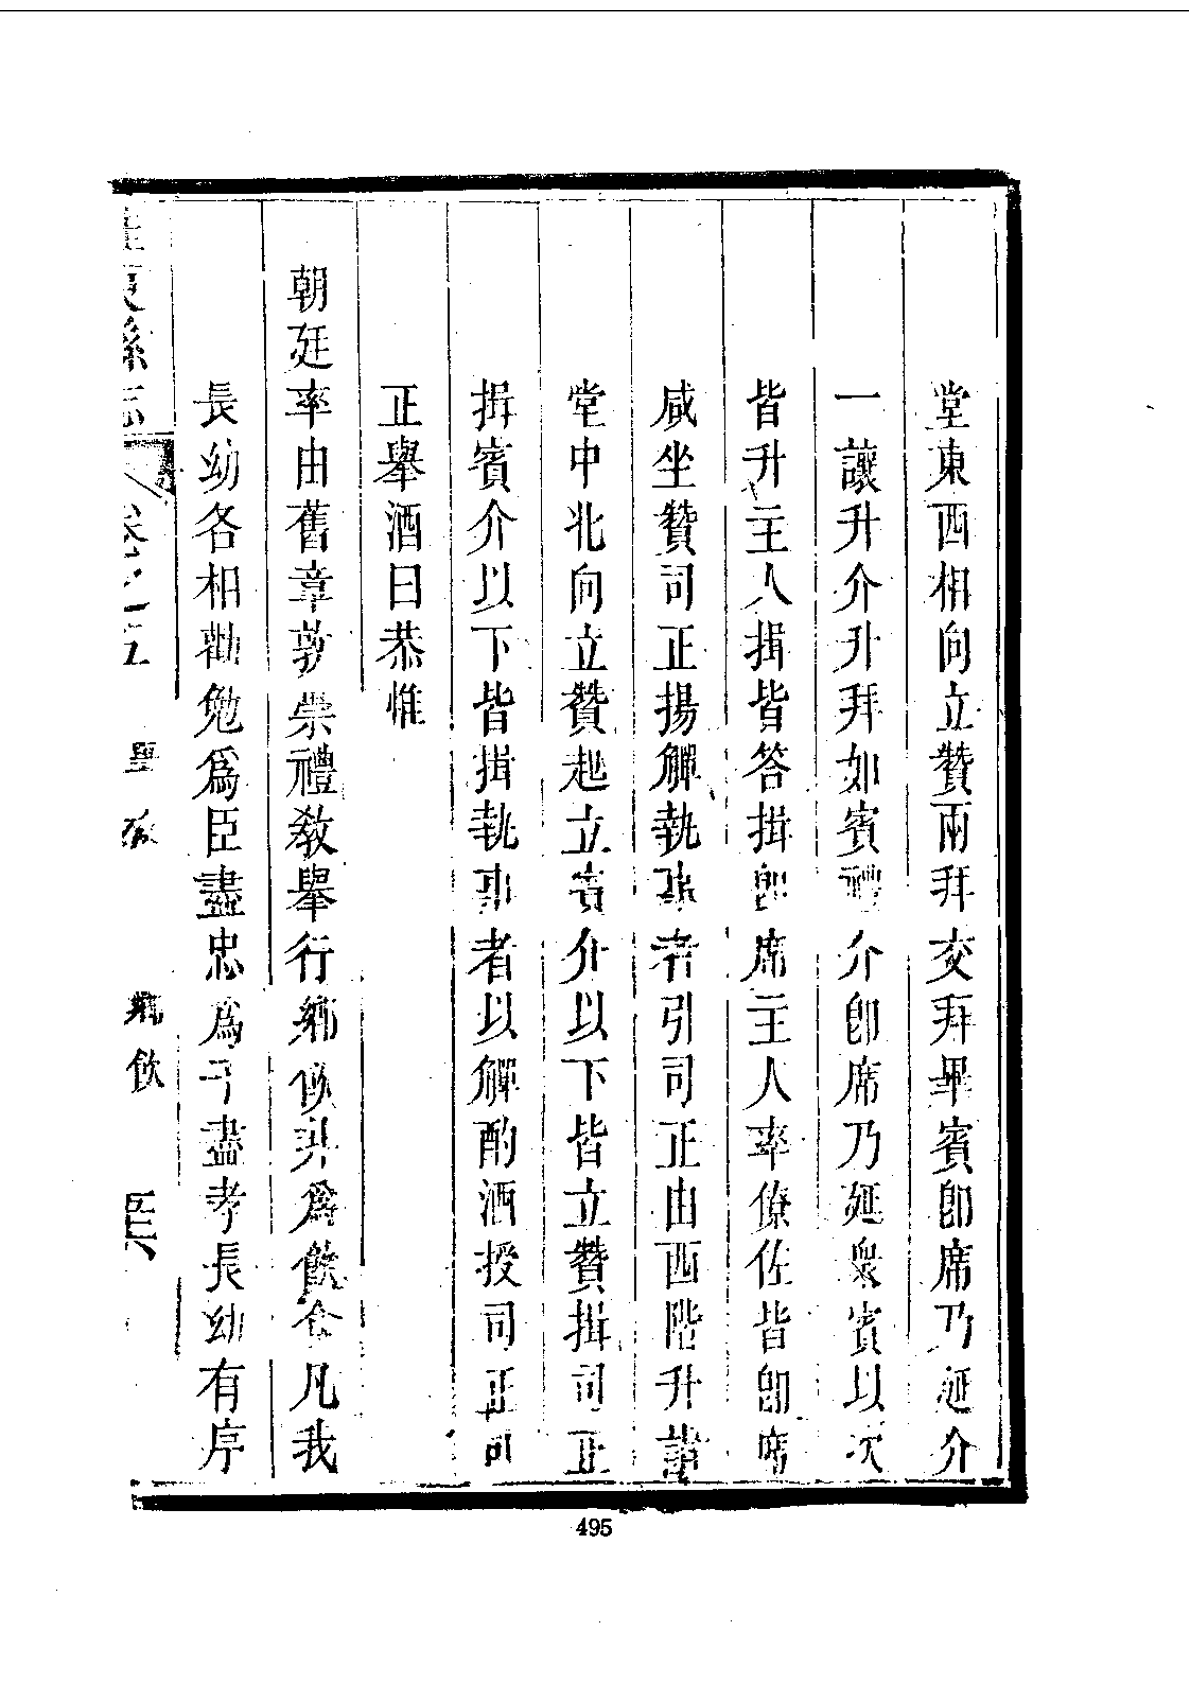 堂東西相向立贊兩拜交拜畢賓卽席乃延介
一讓升介升拜如賓禮介卽席乃延衆賓以次
皆升主人揖皆答揖卽席主人率僚佐皆卽席
咸坐贊司正揚觶執事者引司正由西階升詣
堂中北向立贊起立賓介以下皆立贊揖司正
揖賓介以下皆揖執事者以觶酌酒授司正司
正舉酒曰恭惟
朝廷率由舊章敦崇禮敎舉行鄉飮非爲飮食凡我
長幼各相勸勉爲臣盡忠爲子盡孝長幼有序
縣志 卷之五 鄉飮
495